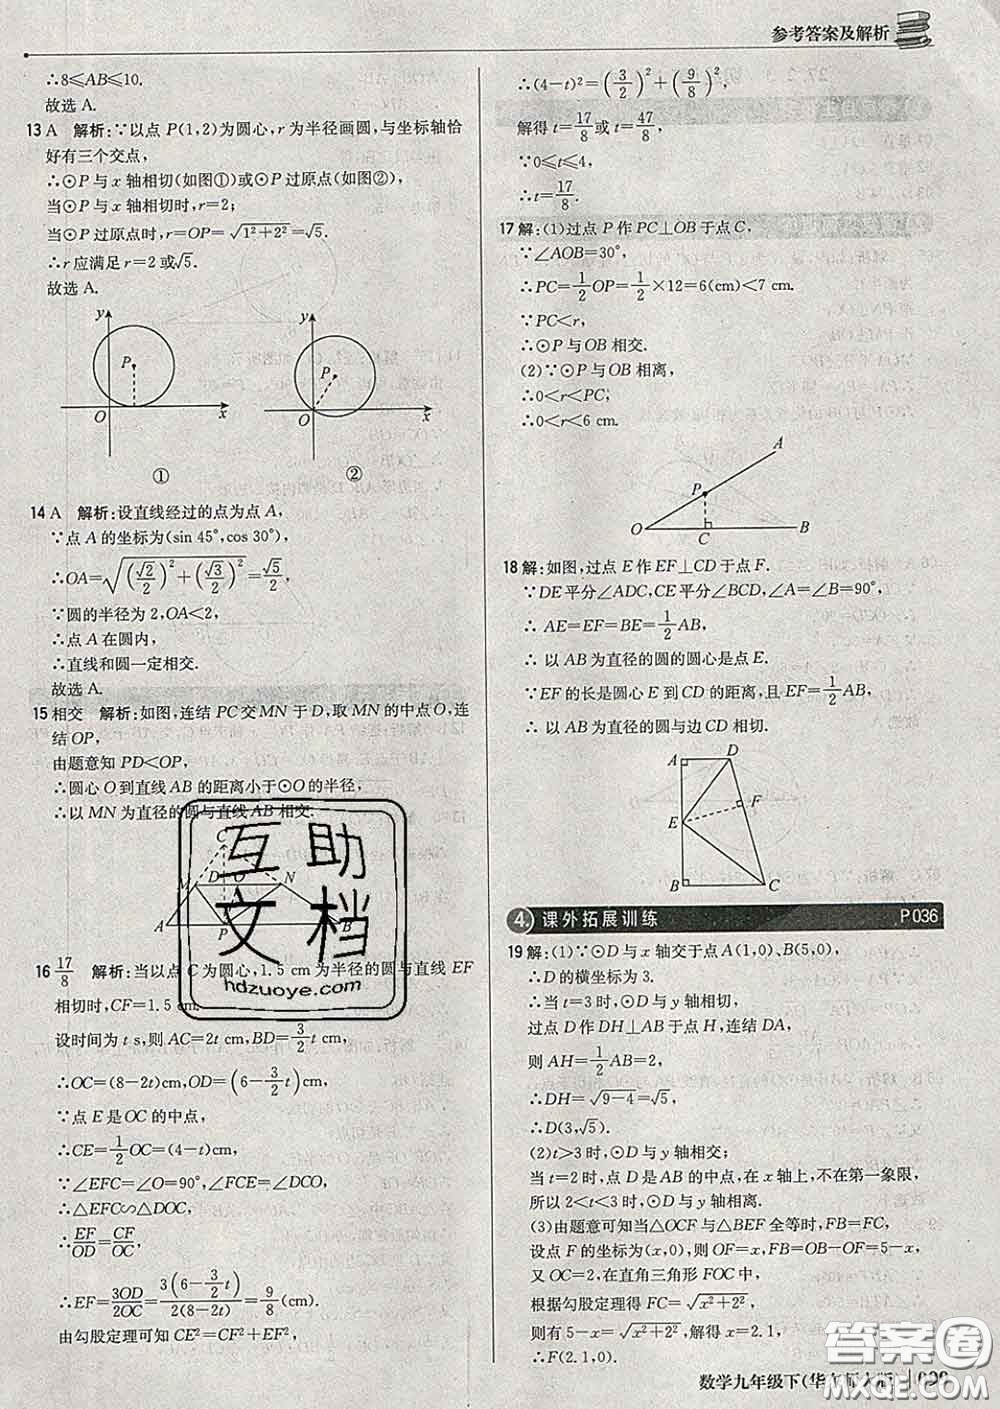 参考答案及解析
∴8⩽AB⩽10.
故选 A.
13 A 解析:∵以点 P(1,2)为圆心,r为半径画圆,与坐标轴恰
好有三个交点,
∴⊙P 与 x 轴相切(如图①)或⊙P 过原点(如图②),
当⊙P 与 x 轴相切时,r=2;
当⊙P 过原点时,r=OP=√(1²+2²)=√5.
∴r 应满足 r=2 或√5.
故选 A.
y P O x ①
y P O x ②
14 A 解析:设直线经过的点为点 A,
∵点 A 的坐标为(sin 45°,cos 30°),
∴OA=√((√2/2)²+(√3/2)²)=√5/2,
∵圆的半径为 2,OA<2,
∴点 A 在圆内,
∴直线和圆一定相交.
故选 A.
15 相交 解析:如图,连结 PC 交 MN 于 D,取 MN 的中点 O,连
结 OP,
由题意知 PD<OP,
∴圆心 O 到直线 AB 的距离小于⊙O 的半径,
∴以 MN 为直径的圆与直线 AB 相交.
C M D O N A P B
互助文档
hdzuoye.com
16 17/8 解析:当以点 C 为圆心,1.5 cm 为半径的圆与直线 EF
相切时,CF=1.5 cm.
设时间为 t s,则 AC=2t cm,BD=3/2 t cm,
∴OC=(8−2t)cm,OD=(6−3/2 t)cm,
∵点 E 是 OC 的中点,
∴CE=1/2 OC=(4−t)cm,
∵∠EFC=∠O=90°,∠FCE=∠DCO,
∴△EFC∽△DOC,
∴EF/OD=CF/OC,
∴EF=3OD/2OC=3(6−3/2 t)/2(8−2t)=9/8(cm).
由勾股定理可知 CE²=CF²+EF²,
∴(4−t)²=(3/2)²+(9/8)²,
解得 t=17/8或 t=47/8,
∵0⩽t⩽4,
∴t=17/8.
17 解:(1)过点 P 作 PC⊥OB 于点 C,
∵∠AOB=30°,
∴PC=1/2 OP=1/2×12=6(cm)<7 cm.
∵PC<r,
∴⊙P 与 OB 相交.
(2)∵⊙P 与 OB 相离,
∴0<r<PC;
∴0<r<6 cm.
A P O C B
18 解:如图,过点 E 作 EF⊥CD 于点 F.
∵DE 平分∠ADC,CE 平分∠BCD,∠A=∠B=90°,
∴ AE=EF=BE=1/2 AB,
∴ 以 AB 为直径的圆的圆心是点 E.
∵EF 的长是圆心 E 到 CD 的距离,且 EF=1/2 AB,
∴ 以 AB 为直径的圆与边 CD 相切.
A D F E B C
4. 课外拓展训练 P036
19 解:(1)∵⊙D 与 x 轴交于点 A(1,0),B(5,0),
∴D 的横坐标为 3.
∴当 t=3 时,⊙D 与 y 轴相切,
过点 D 作 DH⊥AB 于点 H,连结 DA,
则 AH=1/2 AB=2,
∴DH=√(9−4)=√5,
∴D(3,√5).
(2)t>3 时,⊙D 与 y 轴相交;
当 t=2 时,点 D 是 AB 的中点,在 x 轴上,不在第一象限,
所以 2<t<3 时,⊙D 与 y 轴相离.
(3)由题意可知当△OCF 与△BEF 全等时,FB=FC,
设点 F 的坐标为(x,0),则 OF=x,FB=OB−OF=5−x,
又 OC=2,在直角三角形 FOC 中,
根据勾股定理得 FC=√(x²+2²),
则有 5−x=√(x²+2²),解得 x=2.1,
∴F(2.1,0).
数学九年级下(华东师大版)
答案圈
MXQE.COM